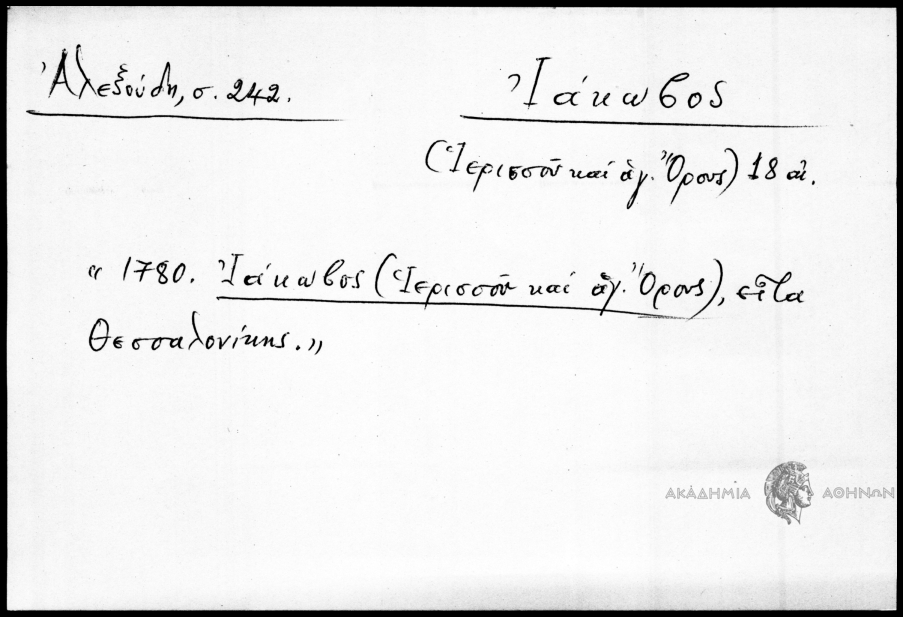 Ἀλεξούδη, σ. 242.
Ἰάκωβος
(Ἱερισσοῦ καί ἁγ. Ὄρους) 18 αἰ.
« 1780. Ἰάκωβος (Ἱερισσοῦ καί ἁγ. Ὄρους), εἶτα
Θεσσαλονίκης. »
ΑΚΑΔΗΜΙΑ ΑΘΗΝΩΝ